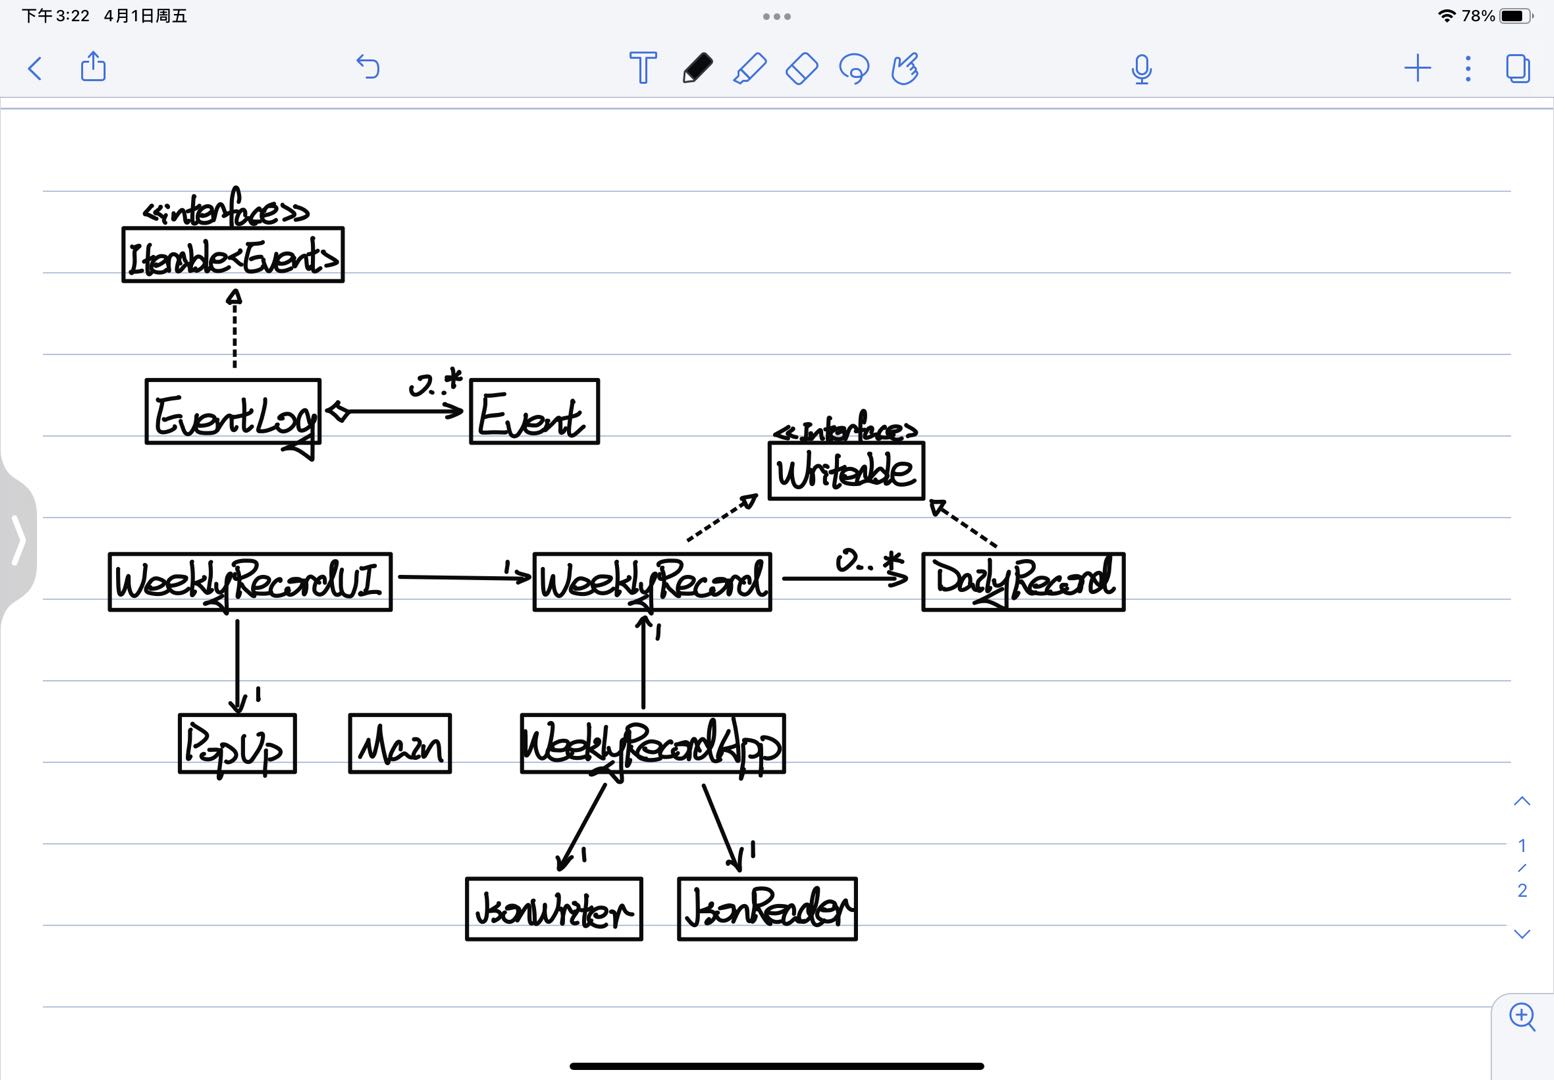 下午3:22 4月1日周五
78%
T
<<interface>>
Iterable<Event>
0..*
EventLog
Event
<<Interface>
Writeable
WeeklyRecordUI
1
WeeklyRecord
0..*
DailyRecord
1
1
PopUp
Main
WeeklyRecordApp
1
1
JsonWriter
JsonReader
1
/
2